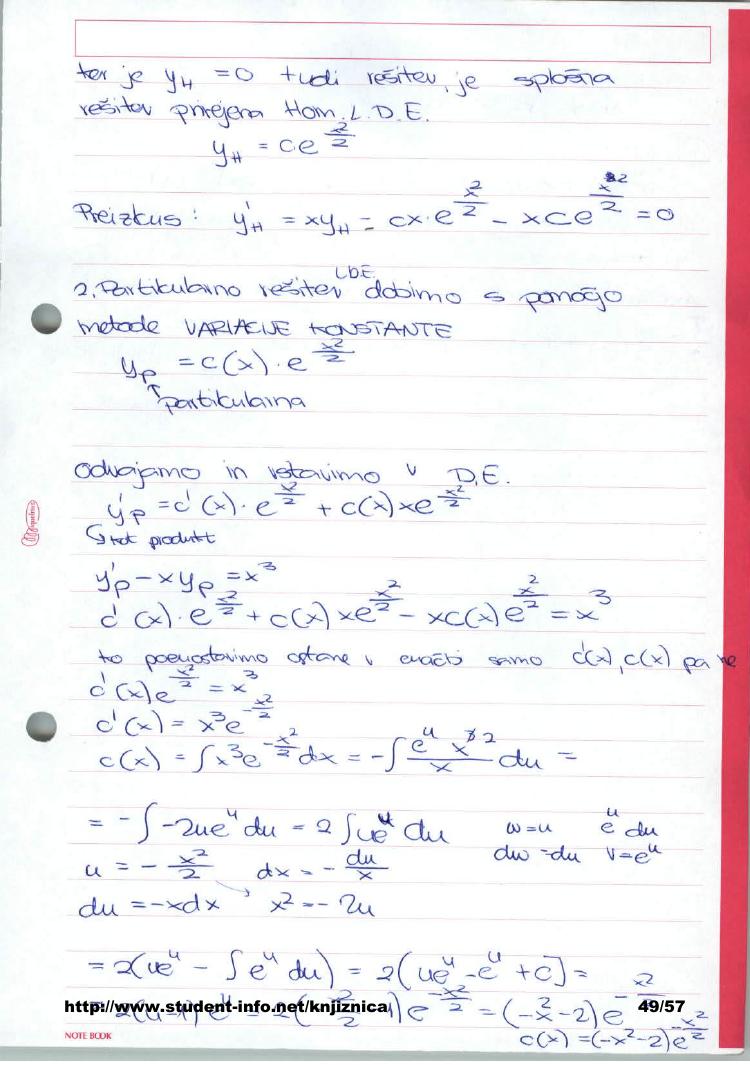 ter je y_H = 0 tudi rešitev, je splošna
rešitev prirejena Hom. L.D.E.
y_H = ce^(x²/2)
Preizkus: y'_H = xy_H = cx·e^(x²/2) - xce^(x²/2) = 0
2. Partikularno rešitev L.D.E. dobimo s pomočjo
metode VARIACIJE KONSTANTE
y_p = c(x)·e^(x²/2)
partikularna
Odvajamo in vstavimo v D.E.
y'_p = c'(x)·e^(x²/2) + c(x)xe^(x²/2)
kot produkt
y'_p - xy_p = x³
c'(x)·e^(x²/2) + c(x)xe^(x²/2) - xc(x)e^(x²/2) = x³
to poenostavimo ostane v enačbi samo c'(x), c(x) pa ne
c'(x)e^(x²/2) = x³
c'(x) = x³e^(-x²/2)
c(x) = ∫x³e^(-x²/2)dx = -∫(e^u x³ ²)/x du =
= -∫-2ue^u du = 2∫ue^u du w=u e^u du
u = -x²/2 dx = -du/x dw=du v=e^u
du = -xdx x² = -2u
= 2(ue^u - ∫e^u du) = 2(ue^u - e^u + C] =
= 2(u-1)e^u = 2(-x²/2 - 1)e^(-x²/2) = (-x²-2)e^(-x²/2)
http://www.student-info.net/knjiznica 49/57
c(x) = (-x²-2)e^(-x²/2)
NOTE BOOK